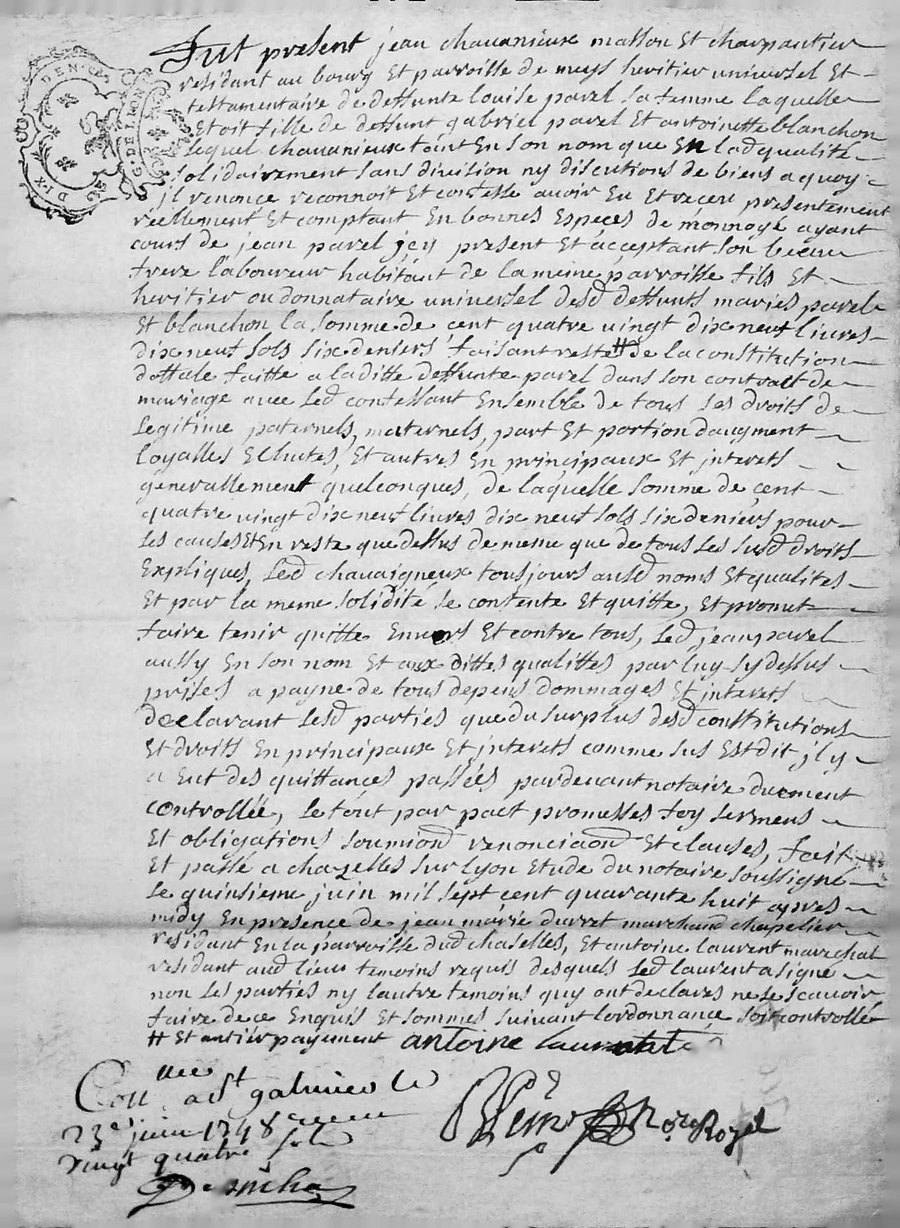 DIX DEN.
G. DE LION
fut present jean chauanieux masson Et charpantier
residant au bourg Et parroisse de meys heritier universel Et
testamentaire de deffunte louise pavel sa femme laquelle
Etoit fille de deffunt gabriel pavel Et antoinette blanchon
lequel chauanieux tant En son nom que En ladqualité
solidairement sans division ny discutions de biens aquoy
jl renonce reconnoit Et confesse avoir Eu Et receu presentement
reellement Et comptant En bonnes Especes de monnoye ayant
cours de jean pavel jcy present Et acceptant son beau
frere laboureur habitant de la meme parroisse fils Et
heritier ou donnataire universel desd deffunts mariés pavel
Et blanchon la somme de cent quatre vingt dix neuf livres
dix neuf sols six deniers faisant reste # de la constitution
dottale faitte a laditte deffunte pavel dans son contract de
mariage avec led confessant Ensemble de tous ses droits de
legitime paternels, maternels, part Et portion daugment
loyalles Echutes, Et autres En principaux Et jnterets
generallement quelconques, de laquelle somme de cent
quatre vingt dix neuf livres dix neuf sols six deniers pour
les causes Et En reste que dessus de meme que de tous les susd droits
Expliques, led chavaigneux tousjours ausd noms Et qualites
Et par la meme solidité se contente Et quitte, Et promet
faire tenir quitte Envers Et contre tous, led jean pavel
aussy En son nom Et aux dittes qualittes par luy sy dessus
prises a payne de tous depens dommages Et jnterets
declarant lesd parties que du surplus desd constitutions
Et droits En principaux Et jnterets comme sus Est dit, jl y
a Eut des quittances passées pardevant notaire duement
controllée, le tout par pact promesses foy sermens
Et obligations soumiond renonciaond Et clauses, fait
Et passé a chazelles sur lyon Etude du notaire soussigné
le quinsieme juin mil sept cent quarante huit apres
midy En presence de jean marie durret marchand chapelier
residant En la parroisse dud chaselles, Et antoine laurent marechal
residant aud lieu temoins requis desquels led laurent a signé
non les parties ny lautre temoins quy ont declarés ne le scavoir
faire de ce Enquis Et sommes suivant lordonnance soit controllé
# Et antier payement antoine laurent
Con.llee a st galmier le
23e juin 1748 receu
vingt quatre sols
no.re Royal